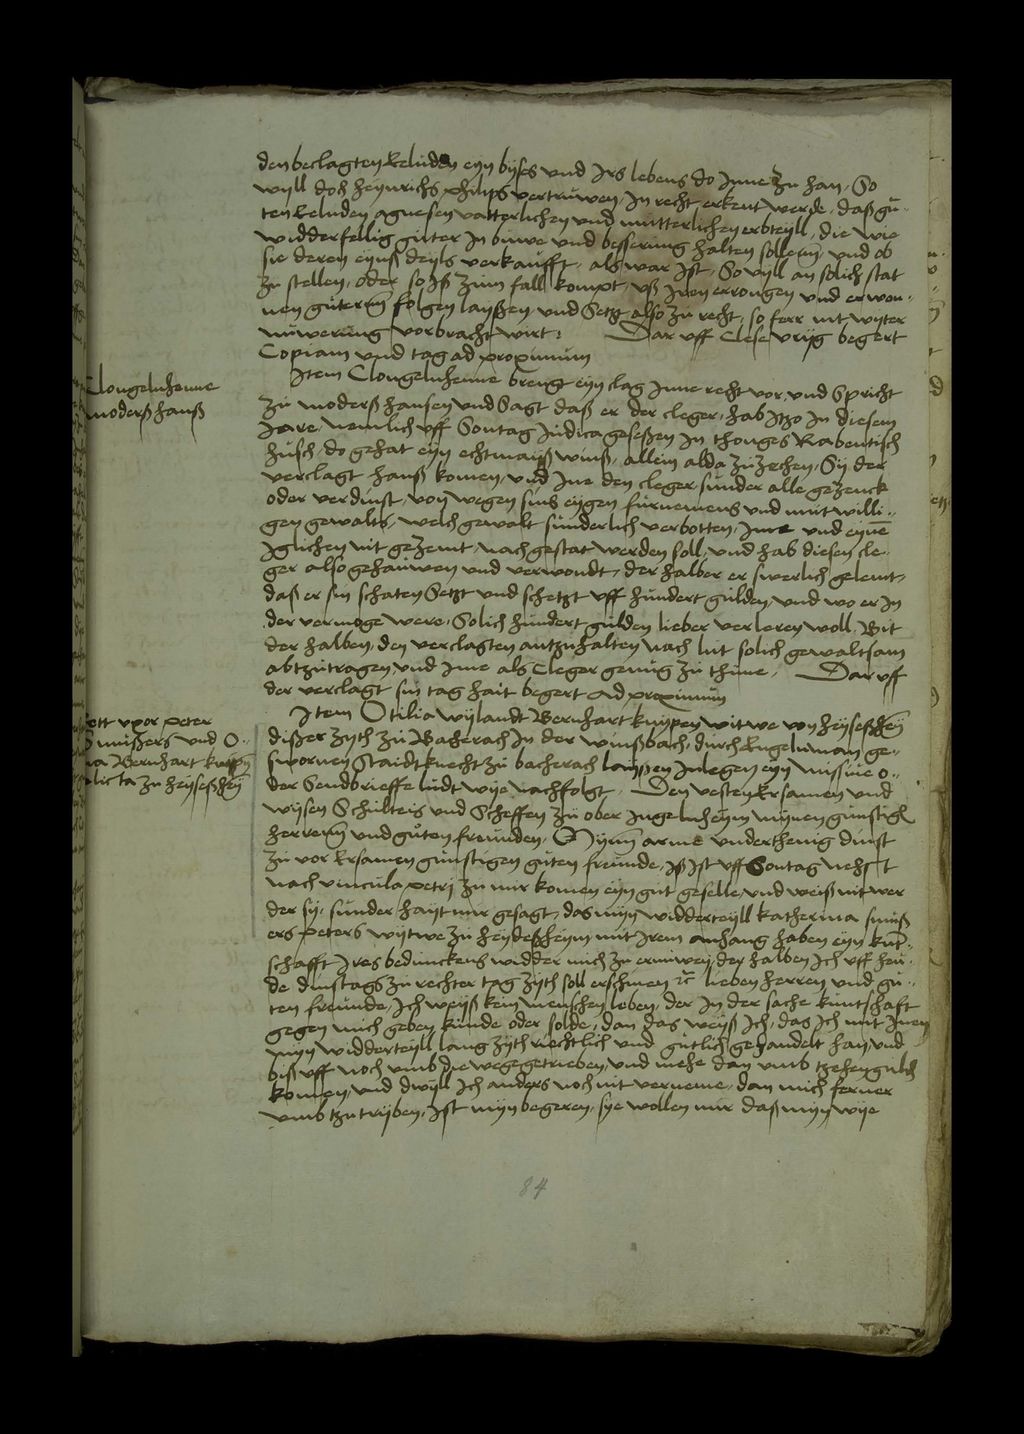 den beclagten Eeluden eyn byses und Jrs lebens do Jnne zu han, So
wyll doch heynrichs philips vertruwen, Jn recht erkent werde, daß gu-
ten Eeluden agnesen vatterlichen und mutterlichen erbteyll, die wie
widderfellig guter Jn buwe und besserung halten sollenn, und ob
sie deren eynß deyls verkaufft, als war Jst, So vyll an solich stat
zu stellen, oder so Jß zum fall kompt, uß Jren errongen und erwon-
nen guternn folgen layßen und Setz also zu recht, so ferr nit wyter
nuwerung vorbracht wirt. Dar uff Clese vryg begert
Copiam und tag ad proximum
Clongelnhenne
moderß hanß
Item Clongelnhenne brengt eyn clag Jnne recht vor, und Spricht
zu moderß hansen und Sagt daß er der cleger, hab Jtzo Jn diesem
Jare, Nemlich uff Sontag Judica geseßen Jn thonges Rabentisch
husch, do gehat eyn echtmayß winß, allein alda zu zechen, Sy der
verclagt hanß komen, und Jne den cleger sunder alle gezenck
oder verdinst, von wegen sins eygen furnemens und mut willi-
gen gewalts, welch gewalt sunderlich verbotten, Jme und eynē
Jglichen nit gezemt, nach gestat werden soll, und hab diesen cle-
ger also gehauwen und verwondt, der halber er swerlich gelemt,
daß er sin schaten Setzt und schetzt uff hundert gulden, und wo er Jn
der vermoge were, Solich hundert gulden lieber verleren woll, Bit
der halben, den verclagten antzuhalten nach lut solich gewaltsam
abtzutragen, und Jme als Cleger genug zu thune, Dar uff
der verclagt sin tag hait begert Ad proximum
vxor peter
Smußers und O-
Bernhart knyppen
relicta zu heyseßhey
Item Otilia wylandt Bernhart knypen witwe von heyseßhey
dißer zyth zu Bacherach Jn der winßbach, durch Engelnman ge-
swornen Staidt knecht zu bacherach layßen Jnlegen eyn missive o-
der Sendbrieffe ludt wye nachfolgt, Den vesten Ersamen und
wysen Schulteis und Scheffen zu ober Jngelnheym mynen gunstigē
herrenn und guten freunden, Mynn arme underthenig dinst
zu vor Ersamen gunstigen guten freunde, Jß Jst uff Sontag nehst
nach vincula petrj zu mir komen eyn gut geselle, und weiß nit wer
der sy, sunder hayt mir gesagt, das myn widderteyll katherina smuß
ers peters wytwe zu heydeßheym mit Jrem anhang haben eyn kunt-
schafft Jres beduncken widder mich zu ernuwen, der halben Jch uff heu-
de dinstags zu rechter tag zyth soll erschinen ꝛc lieben herren und gu-
ten freunde, Jch weyß kein menschen leben, der Jn der sache kuntschaft
gegen mich geben kunde oder solde, dan das weyß Jch, das Jch mit Jnen
myn widderteyll lang zyth rechtlich und gutlich gehandelt han und
biß uff noch umb die wegegetrieben, und mehe dan umb
komen, und dwyll Jch anders noch nit verneme, dan mich ferner
umb tzu tryben, Jst myn begeren, sye wollen mir daß myn wye
84